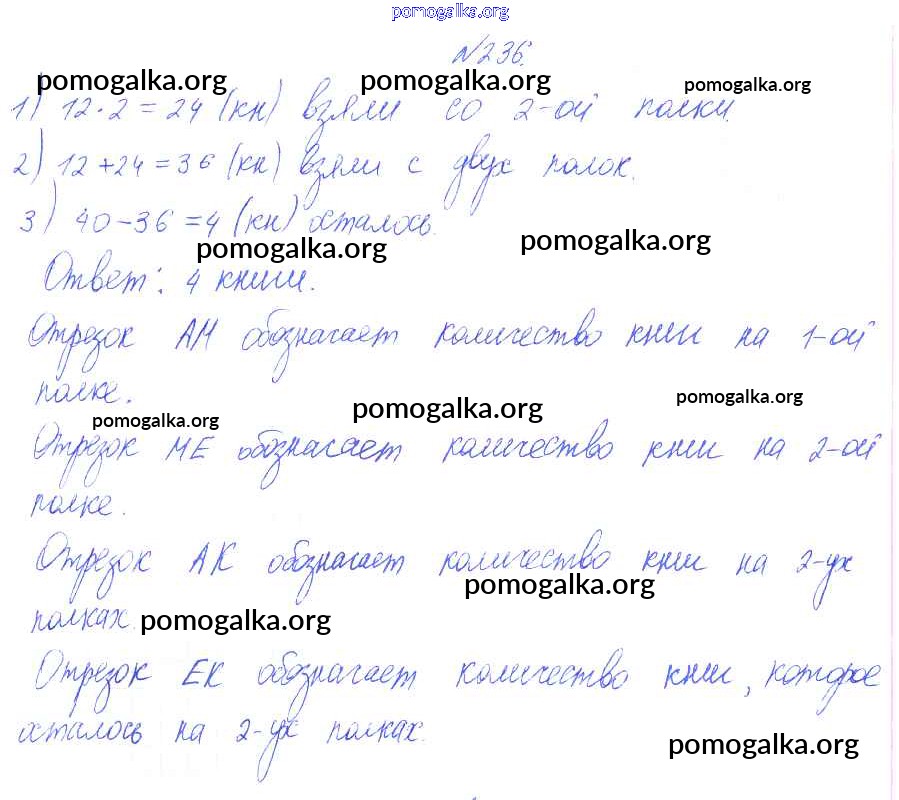 pomogalka.org
№236.
pomogalka.org pomogalka.org pomogalka.org
1) 12·2=24 (кн) взяли со 2-ой полки.
2) 12+24=36 (кн) взяли с двух полок.
3) 40-36=4 (кн) осталось.
pomogalka.org pomogalka.org
Ответ: 4 книги.
Отрезок АМ обозначает количество книг на 1-ой
полке.
pomogalka.org pomogalka.org pomogalka.org
Отрезок МЕ обозначает количество книг на 2-ой
полке.
Отрезок АК обозначает количество книг на 2-ух
pomogalka.org
полках. pomogalka.org
Отрезок ЕК обозначает количество книг, которое
осталось на 2-ух полках.
pomogalka.org